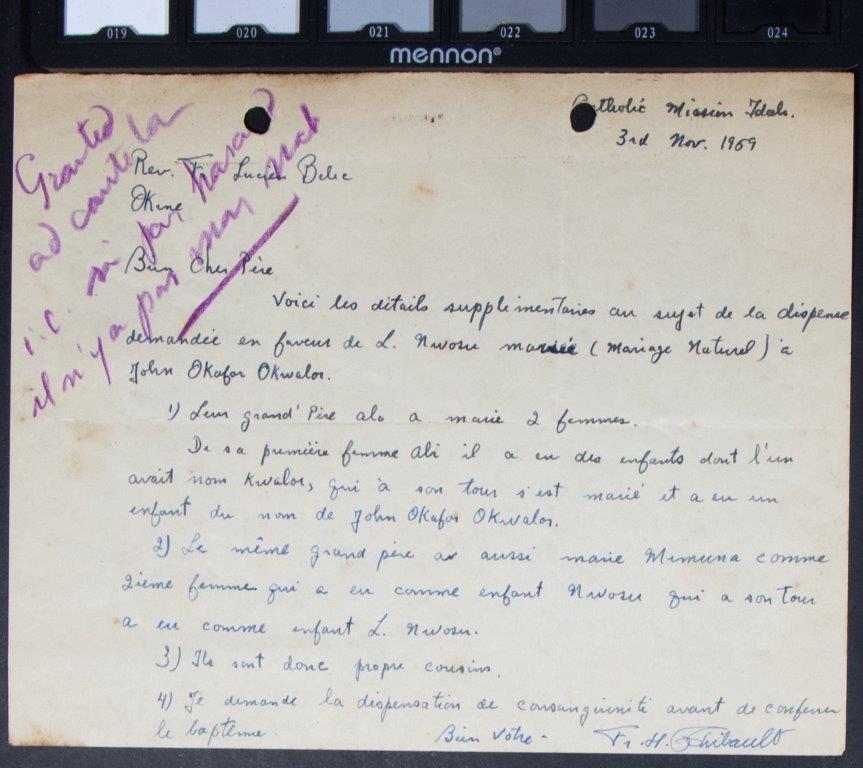 019 020 021 022 023 024
mennon®
Catholic Mission Idah.
3rd Nov. 1959
Granted
ad cautela
i.c. si par hasard
il n'y a pas
Rev. Fr Lucien Belec
Okene
Bien Cher Père
Voici les détails supplementaires au sujet de la dispense
demandée en faveur de L. Nwosu mariée (Mariage Naturel) à
John Okafor Okwalor.
1) Leur grand'Père alo a marie 2 femmes.
De sa première femme Abi il a eu des enfants dont l'un
avait nom Kwalor, qui à son tour s'est marié et a eu un
enfant du nom de John Okafor Okwalor.
2) Le même grand père a aussi marie Mimuna comme
2ieme femme qui a eu comme enfant Nwosu qui a son tour
a eu comme enfant L. Nwosu.
3) Ils sont donc propre cousins.
4) Je demande la dispensation de consanguinité avant de conferer
le baptême.
Bien vôtre -
Fr. H. Thibault